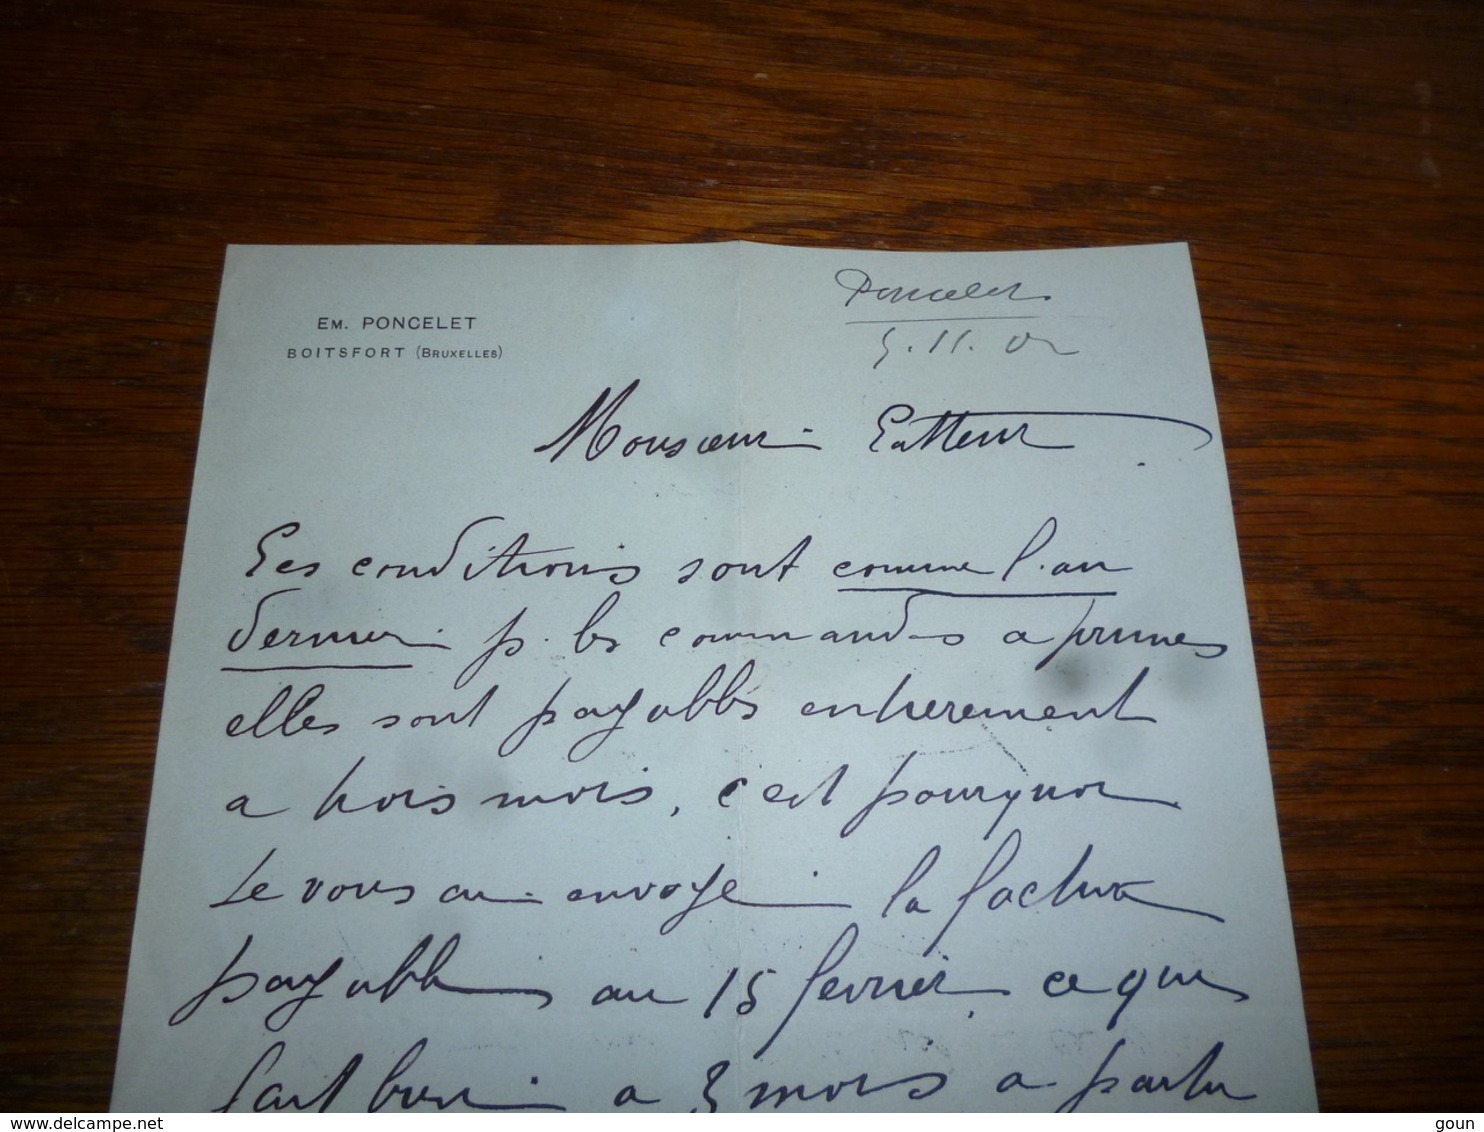 EM. PONCELET
BOITSFORT (BRUXELLES)
Poncelet
5.11.02
Monsieur
Les conditions sont comme l'an
dernier p. les commandes a primes
elles sont payables entierement
a trois mois, c'est pourquoi
je vous ai envoyé la facture
payable au 15 fevrier, ce qui
fait bien a 3 mois a partir
www.delcampe.net
goun